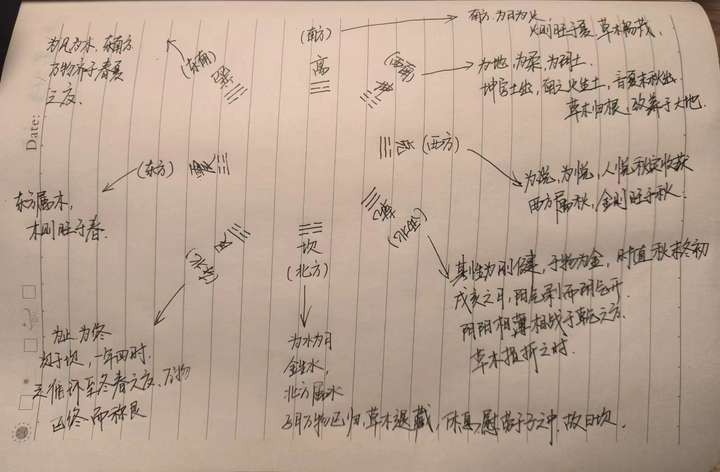 Date:
(南方)
离
南方.为日为火
火则旺于夏.草木畅茂.
(西南)
坤
为地,为柔.为阴土.
坤宫土也,南之火生土,言夏末秋也
草木归根,致养于大地.
兑
(西方)
为说,为悦,人悦秋之收获
西方属秋,金则旺于秋.
乾
(西北)
其性为刚健,于物为金,时值秋末冬初
戌亥之月,阳气剥而阴气升
阴阳相薄相战于乾之方.
草木摧折之时.
坎
(北方)
为水为月
金生水,
北方属水
万物已归,草木退藏,休息慰劳于子之中.故曰坎.
艮
为止为终
次于坎,一年四时.
至冬春之交.万物
已终而称艮
震
(东方)
东方属木,
木则旺于春.
巽
(东南)
为风为木.东南方.
万物齐于春夏
之交.